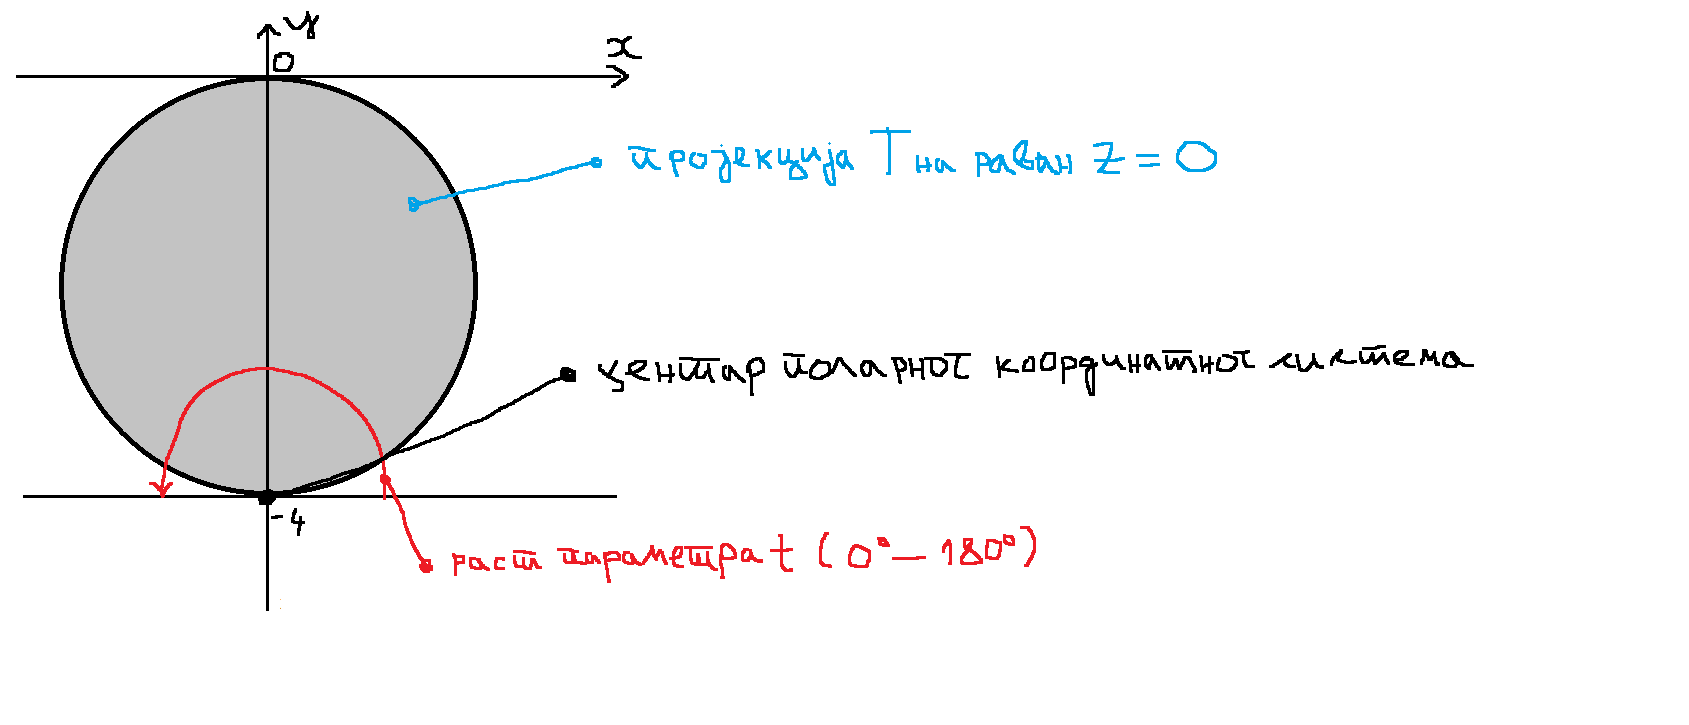 y
x
0
пројекција T на раван z = 0
центар поларног координатног система
-4
раст параметра t (0° — 180°)